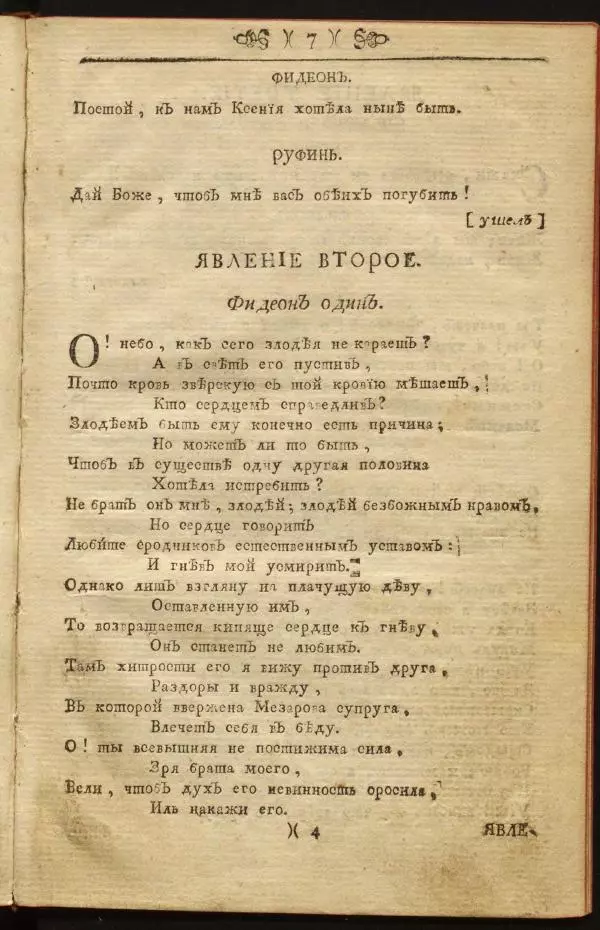 )( 7 )(
ФИДЕОНЪ.
Постой, къ намъ Ксенїя хотѣла нынѣ быть.
РУФИНЬ.
Дай Боже, чтобъ мнѣ васъ обѣихъ погубить!
[ ушелъ ]
ЯВЛЕНІЕ ВТОРОЕ.
Фидеонъ одинъ.
О! небо, какъ сего злодѣя не караешъ?
А въ свѣтъ его пустивъ,
Почто кровь звѣрскую съ той кровїю мѣшаетъ,
Кто сердцемъ справедливъ?
Злодѣемъ быть ему конечно есть причина;
Но можетъ ли то быть,
Чтобъ въ существѣ одну другая половина
Хотѣла истребить?
Не братъ онъ мнѣ, злодѣй; злодѣй безбожнымъ нравомъ,
Но сердце говоритъ
Любите сродниковъ естественнымъ уставомъ:
И гнѣвъ мой усмиритъ.
Однако лишъ взгляну на плачущую дѣву,
Оставленную имъ,
То возвращается кипяще сердце къ гнѣву,
Онъ станетъ не любимъ.
Тамъ хитрости его я вижу противъ друга,
Раздоры и вражду,
Въ которой ввержена Мезарова супруга,
Влечетъ себя въ бѣду.
О! ты всевышняя не постижима сила,
Зря брата моего,
Вели, чтобъ духъ его невинность оросила,
Иль накажи его.
)( 4
ЯВЛЕ-